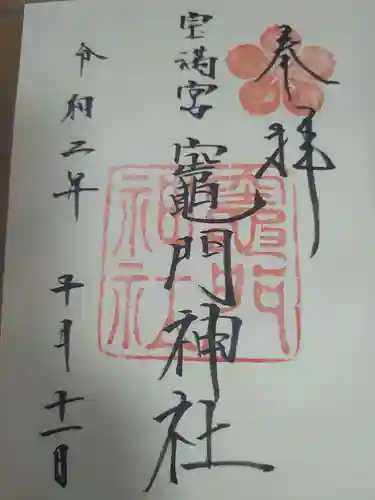 奉拝
宝満宮
竈門神社
令和二年 十月 十一日
竈門
神社